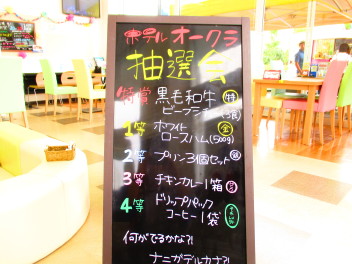 ホテルオークラ
抽選会
特賞 黒毛和牛 特
1等 ホワイト 金
ロースハム(500g)
2等 プリン3個セット 銀
3等 チキンカレー1箱
4等 ドリップパック
コーヒー1袋
何がでるかな?!
ナニガデルカナ?!